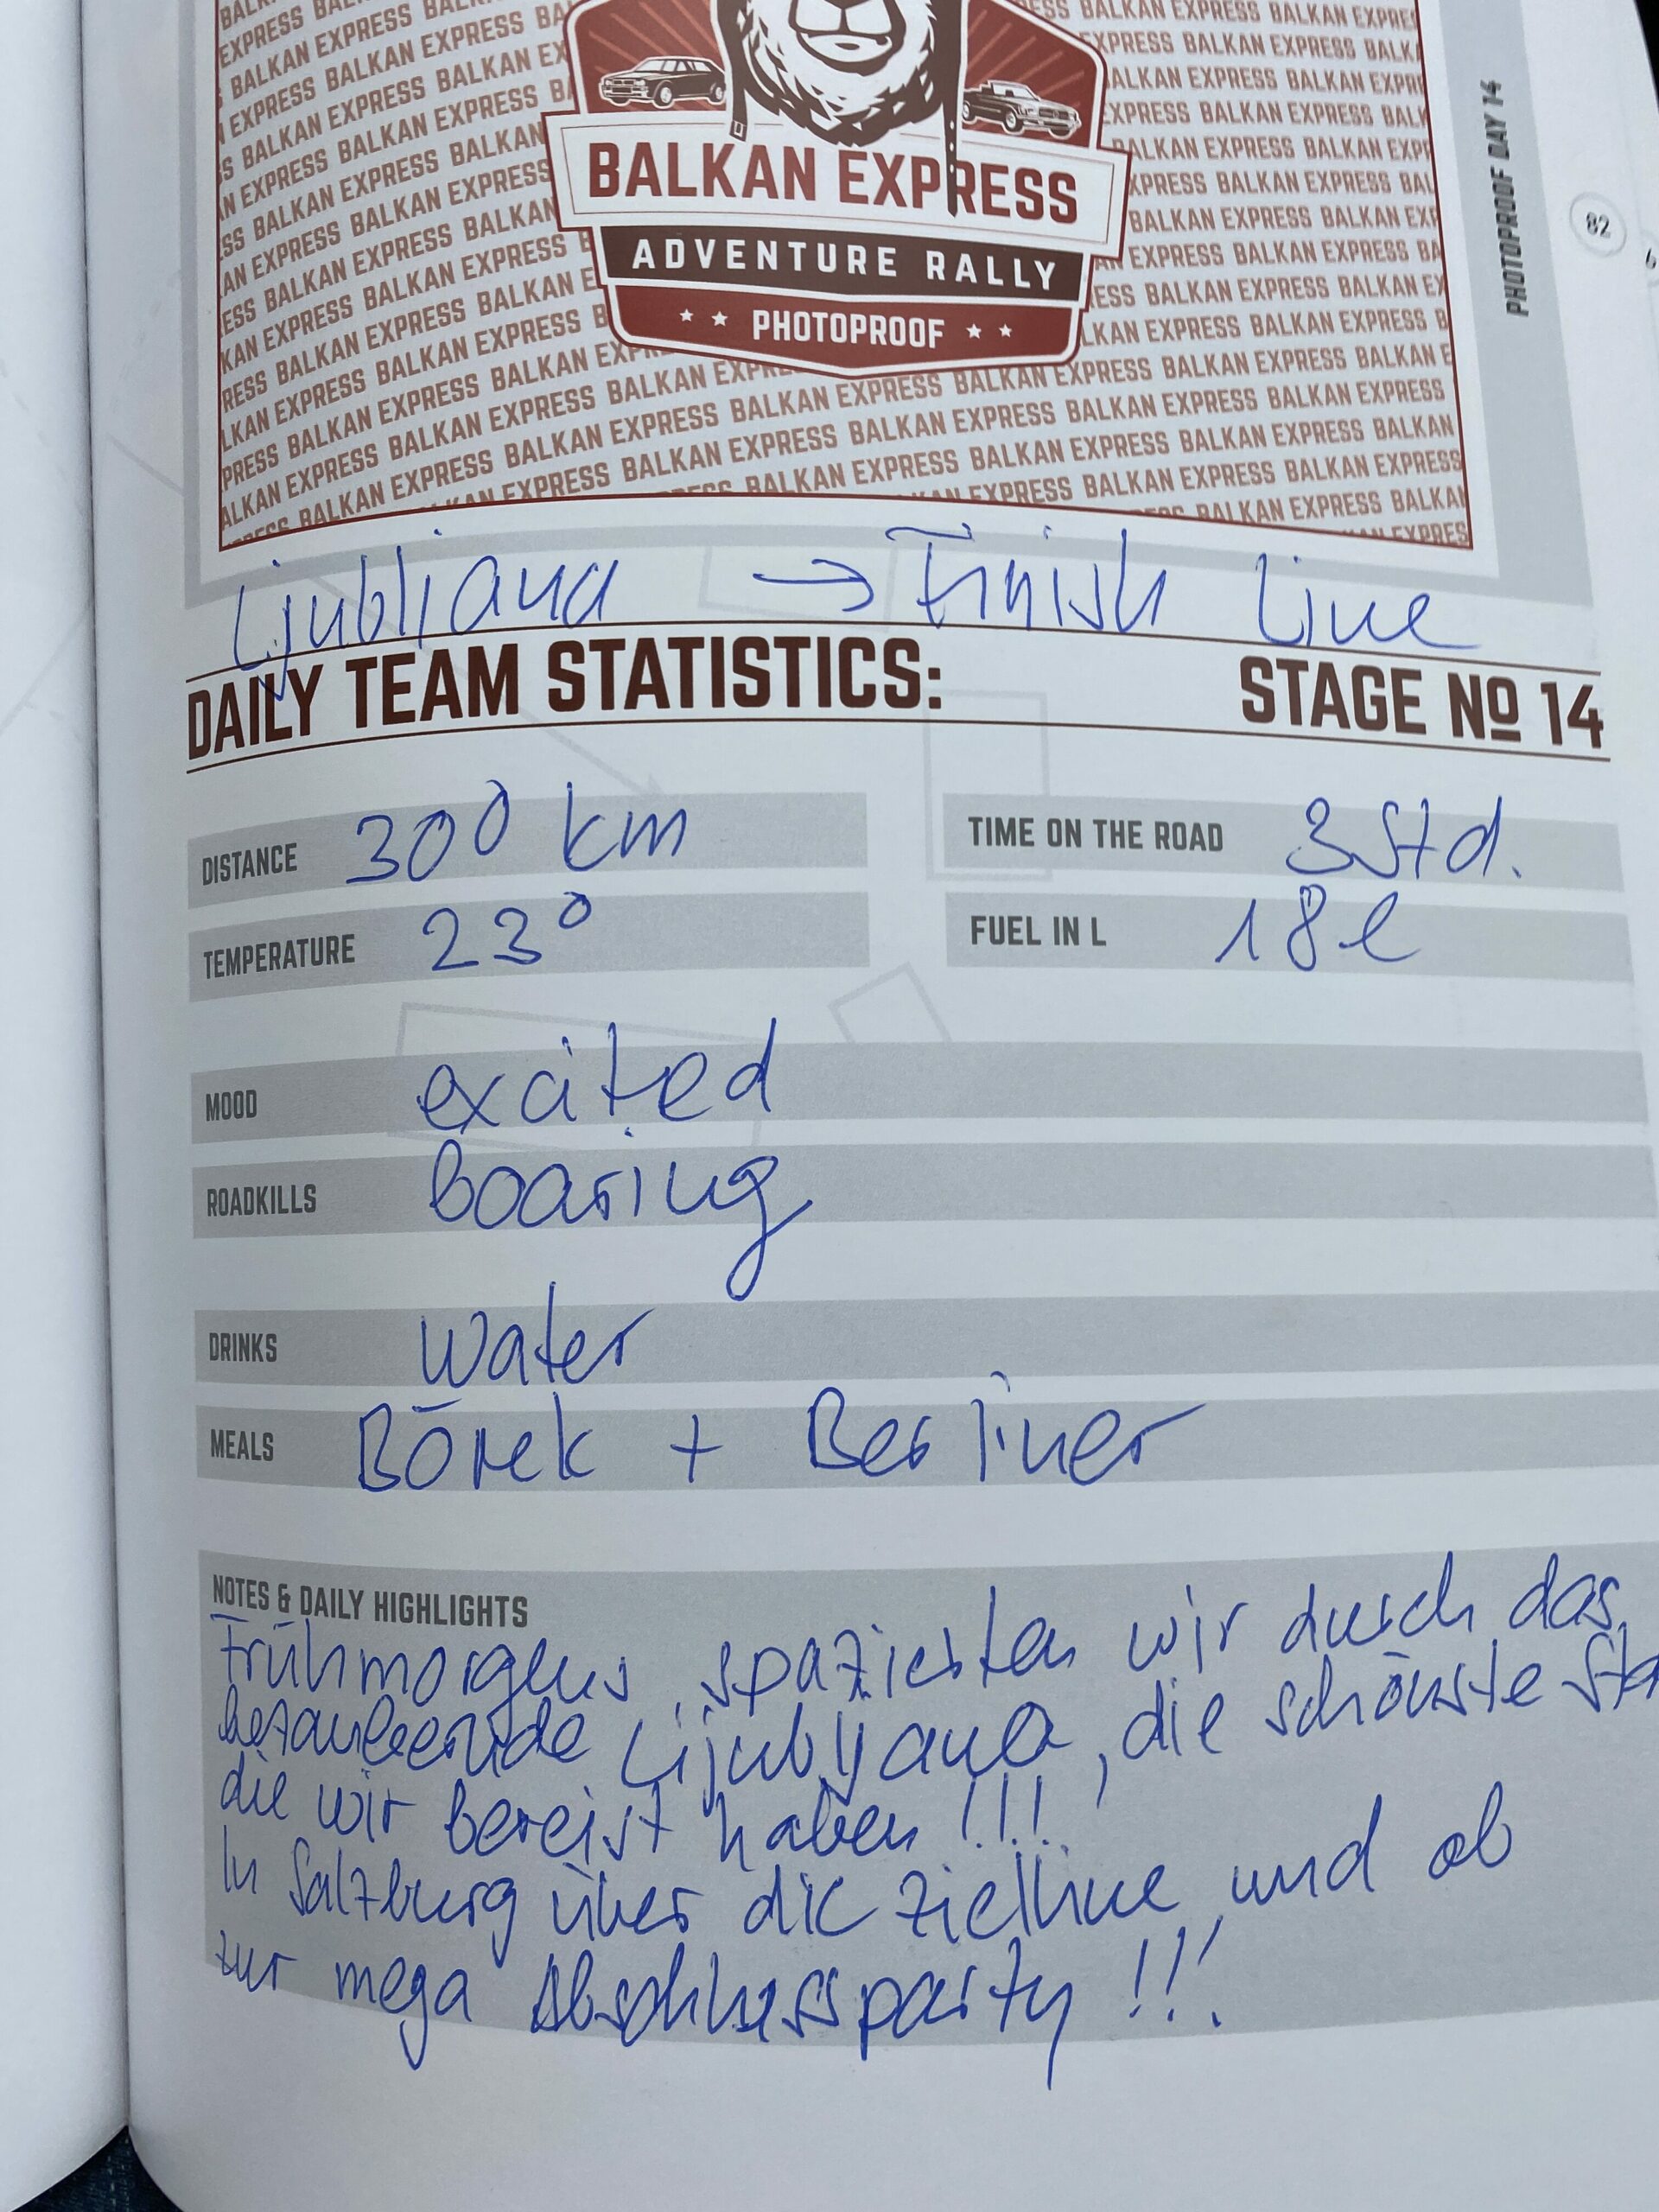 BALKAN EXPRESS
ADVENTURE RALLY
PHOTOPROOF
PHOTOPROOF DAY 14
82
Ljubljana → Finish Line
DAILY TEAM STATISTICS: STAGE Nº 14
DISTANCE 300 km TIME ON THE ROAD 3 Std.
TEMPERATURE 23° FUEL IN L 18 l
MOOD excited
ROADKILLS Boaring
DRINKS Water
MEALS Börek + Berliner
NOTES & DAILY HIGHLIGHTS
Frühmorgens spazierten wir durch das
bezaubernde Ljubljana, die schönste Sta
die wir bereist haben!!!
In Salzburg über die Ziellinie und ab
zur mega Abschlussparty!!!